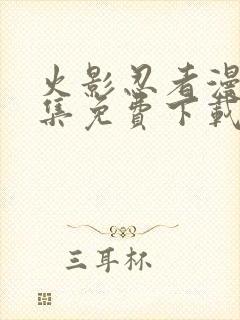 火影忍者漫
集免费下载
三耳杯